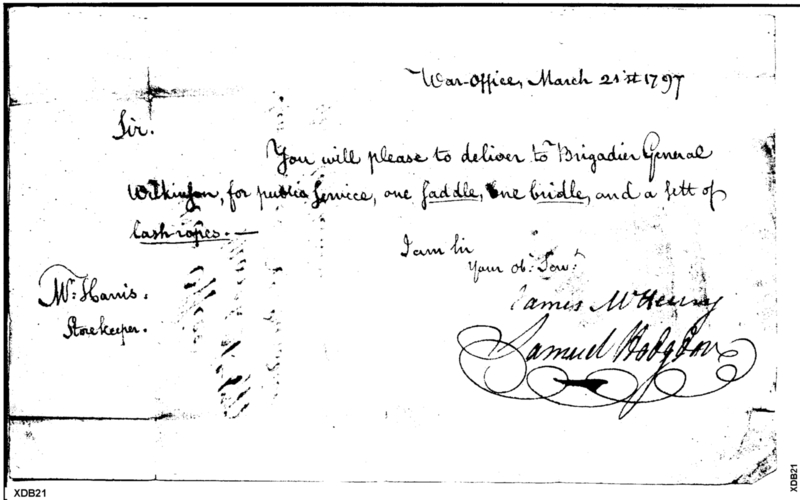 War-Office, March 21st 1797
Sir.
You will please to deliver to Brigadier General
Wilkinson, for public Service, one saddle, one bridle, and a sett of
lash ropes. —
I am Sir
Your ob. Servt.
Mr. Harris.
Storekeeper.
James McHenry
Samuel Hodgdon
XDB21
XDB21